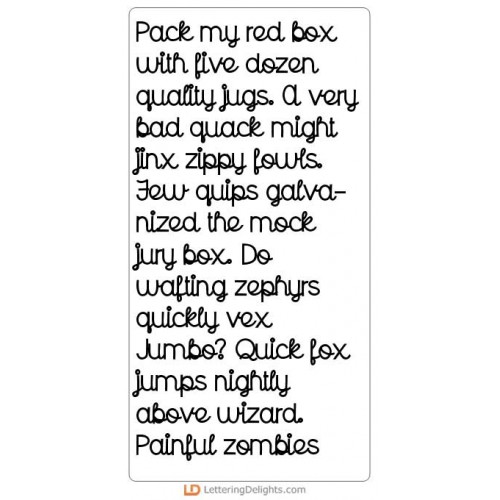 Pack my red box
with five dozen
quality jugs. A very
bad quack might
jinx zippy fowls.
Few quips galva-
nized the mock
jury box. Do
wafting zephyrs
quickly vex
Jumbo? Quick fox
jumps nightly
above wizard.
Painful zombies
LD LetteringDelights.com